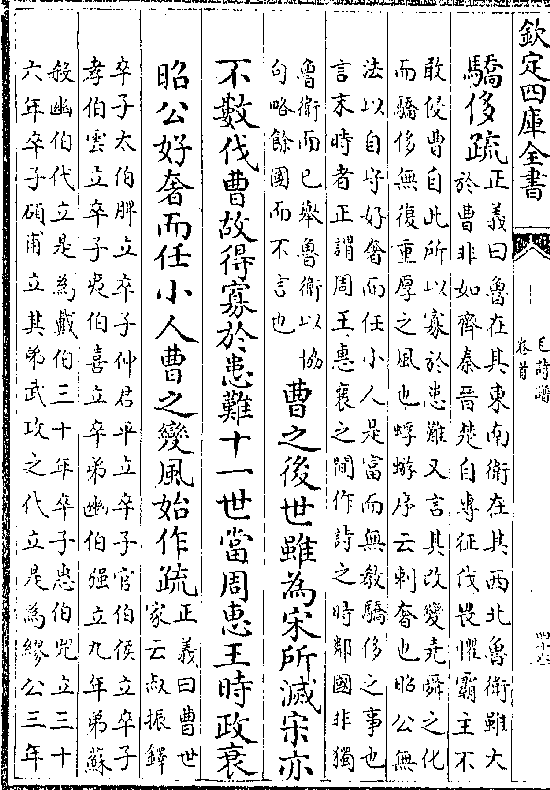 欽定四庫全書
毛詩譜
卷首
驕侈疏正義曰魯在其東南衛在其西北魯衛雖大
於曹非如齊秦晉楚自専征伐畏懼霸主不
敢侵曹自此所以寡於患難又言其改變堯舜之化
而驕侈無復重厚之風也蜉蝣序云刺奢也昭公無
法以自守好奢而任小人是富而無教驕侈之事也
言末時者正謂周王惠襄之間作詩之時鄰國非獨
魯衛而已舉魯衛以協
句略餘國而不言也
曹之後世雖為宋所滅宋亦
不數伐曹故得寡於患難十一世當周惠王時政衰
昭公好奢而任小人曹之變風始作疏正義曰曹世
家云叔振鐸
卒子太伯脾立卒子仲君平立卒子官伯侯立卒子
孝伯雲立卒子夷伯喜立卒弟幽伯强立九年弟蘇
殺幽伯代立是為戴伯三十年卒子惠伯兕立三十
六年卒子碩甫立其弟武攻之代立是為繆公三年